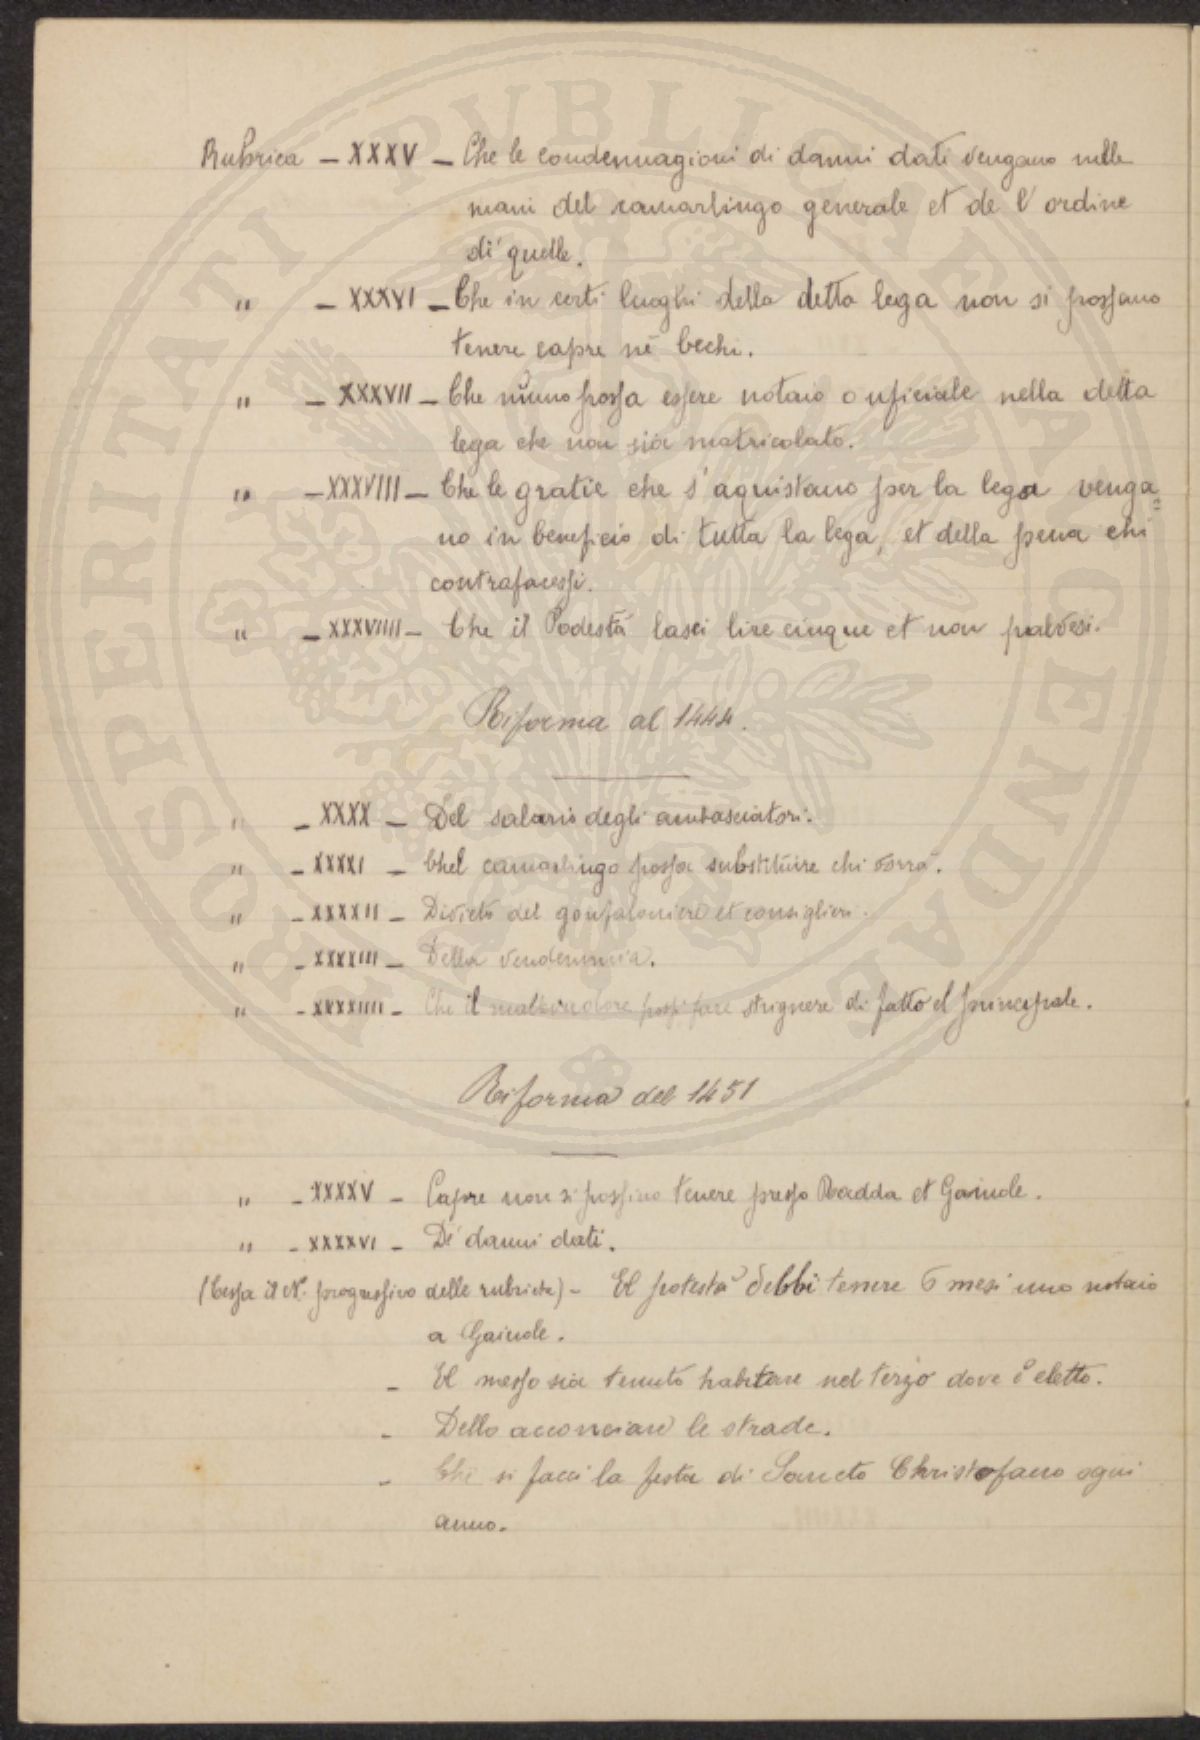 Rubrica – XXXV – Che le condennagioni di danni dati vengano nelle
mani del camarlingo generale et de l'ordine
di quelle.
" – XXXVI – Che in certi luoghi della detta lega non si possano
tenere capre né bechi.
" – XXXVII – Che niuno possa essere notaio o uficiale nella detta
lega che non sia matricolato.
" – XXXVIII – Che le gratie che s'aquistano per la lega venga=
no in beneficio di tutta la lega, et della pena chi
contrafacessi.
" – XXXVIIII – Che il Podestà lasci lire cinque et non palvesi.
Riforma al 1444.
" – XXXX – Del salario degli ambasciatori.
" – XXXXI – Chel camarlingo possa substituire chi vorrà.
" – XXXXII – Divieto del gonfaloniere et consiglieri.
" – XXXXIII – Della vendemmia.
" – XXXXIIII – Che il mallevadore possi fare strignere di fatto el principale.
Riforma del 1451
" – XXXXV – Capre non si possino tenere presso Radda et Gaiuole.
" – XXXXVI – Di danni dati.
(Cessa il N.º progressivo delle rubriche) – El potestà debbi tenere 6 mesi uno notaio
a Gaiuole.
– El messo sia tenuto habitare nel terzo dove è eletto.
– Dello acconciare le strade.
– Che si facci la festa di Sancto Christofano ogni
anno.
PROSPERITATI PUBLICAE AUGENDAE